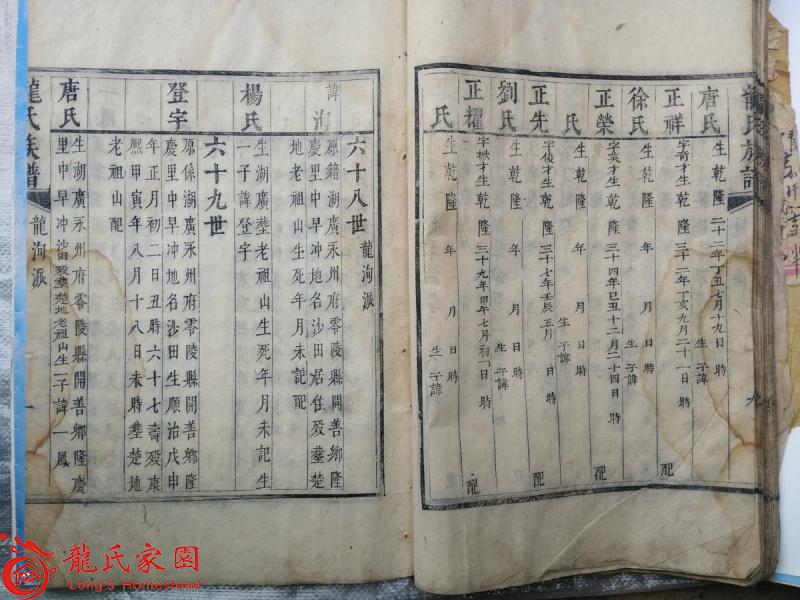 龍氏族譜
九
唐氏 生乾隆二十二年丁丑七月十九日時 生子諱
正祥 字奇才生乾隆三十二年丁亥九月二十一日時 配
徐氏 生乾隆 年 月 日時 生子諱
正榮 字亥才生乾隆三十四年己丑十二月二十四日時 配
氏 生乾隆 年 月 日時 生子諱
正先 字俊才生乾隆三十七年壬辰五月 日時 配
劉氏 生乾隆 年 月 日時 生子諱
正耀 才生乾隆三十九年甲午七月初一日時 配
氏 生乾隆 年 月 日時 生子諱
六十八世 龍洵派
諱洵
原籍湖廣永州府零陵縣開善鄉隆
慶里中旱冲地名沙田居住殁塟楚
地老祖山生死年月未記配
楊氏
生湖廣塟老祖山生死年月未記生
一子諱登宇
六十九世
登宇
原係湖廣永州府零陵縣開善鄉隆
慶里中旱冲地名沙田生順治戊申
年正月初二日丑時六十七壽殁康
熙甲寅年八月十八日未時塟楚地
老祖山配
唐氏
生湖廣永州府零陵縣開善鄉隆慶
里中旱冲沙田殁塟楚地老祖山生一子諱一鳳
龍氏族譜 龍洵派 一
龍氏家園
Long's Homestead